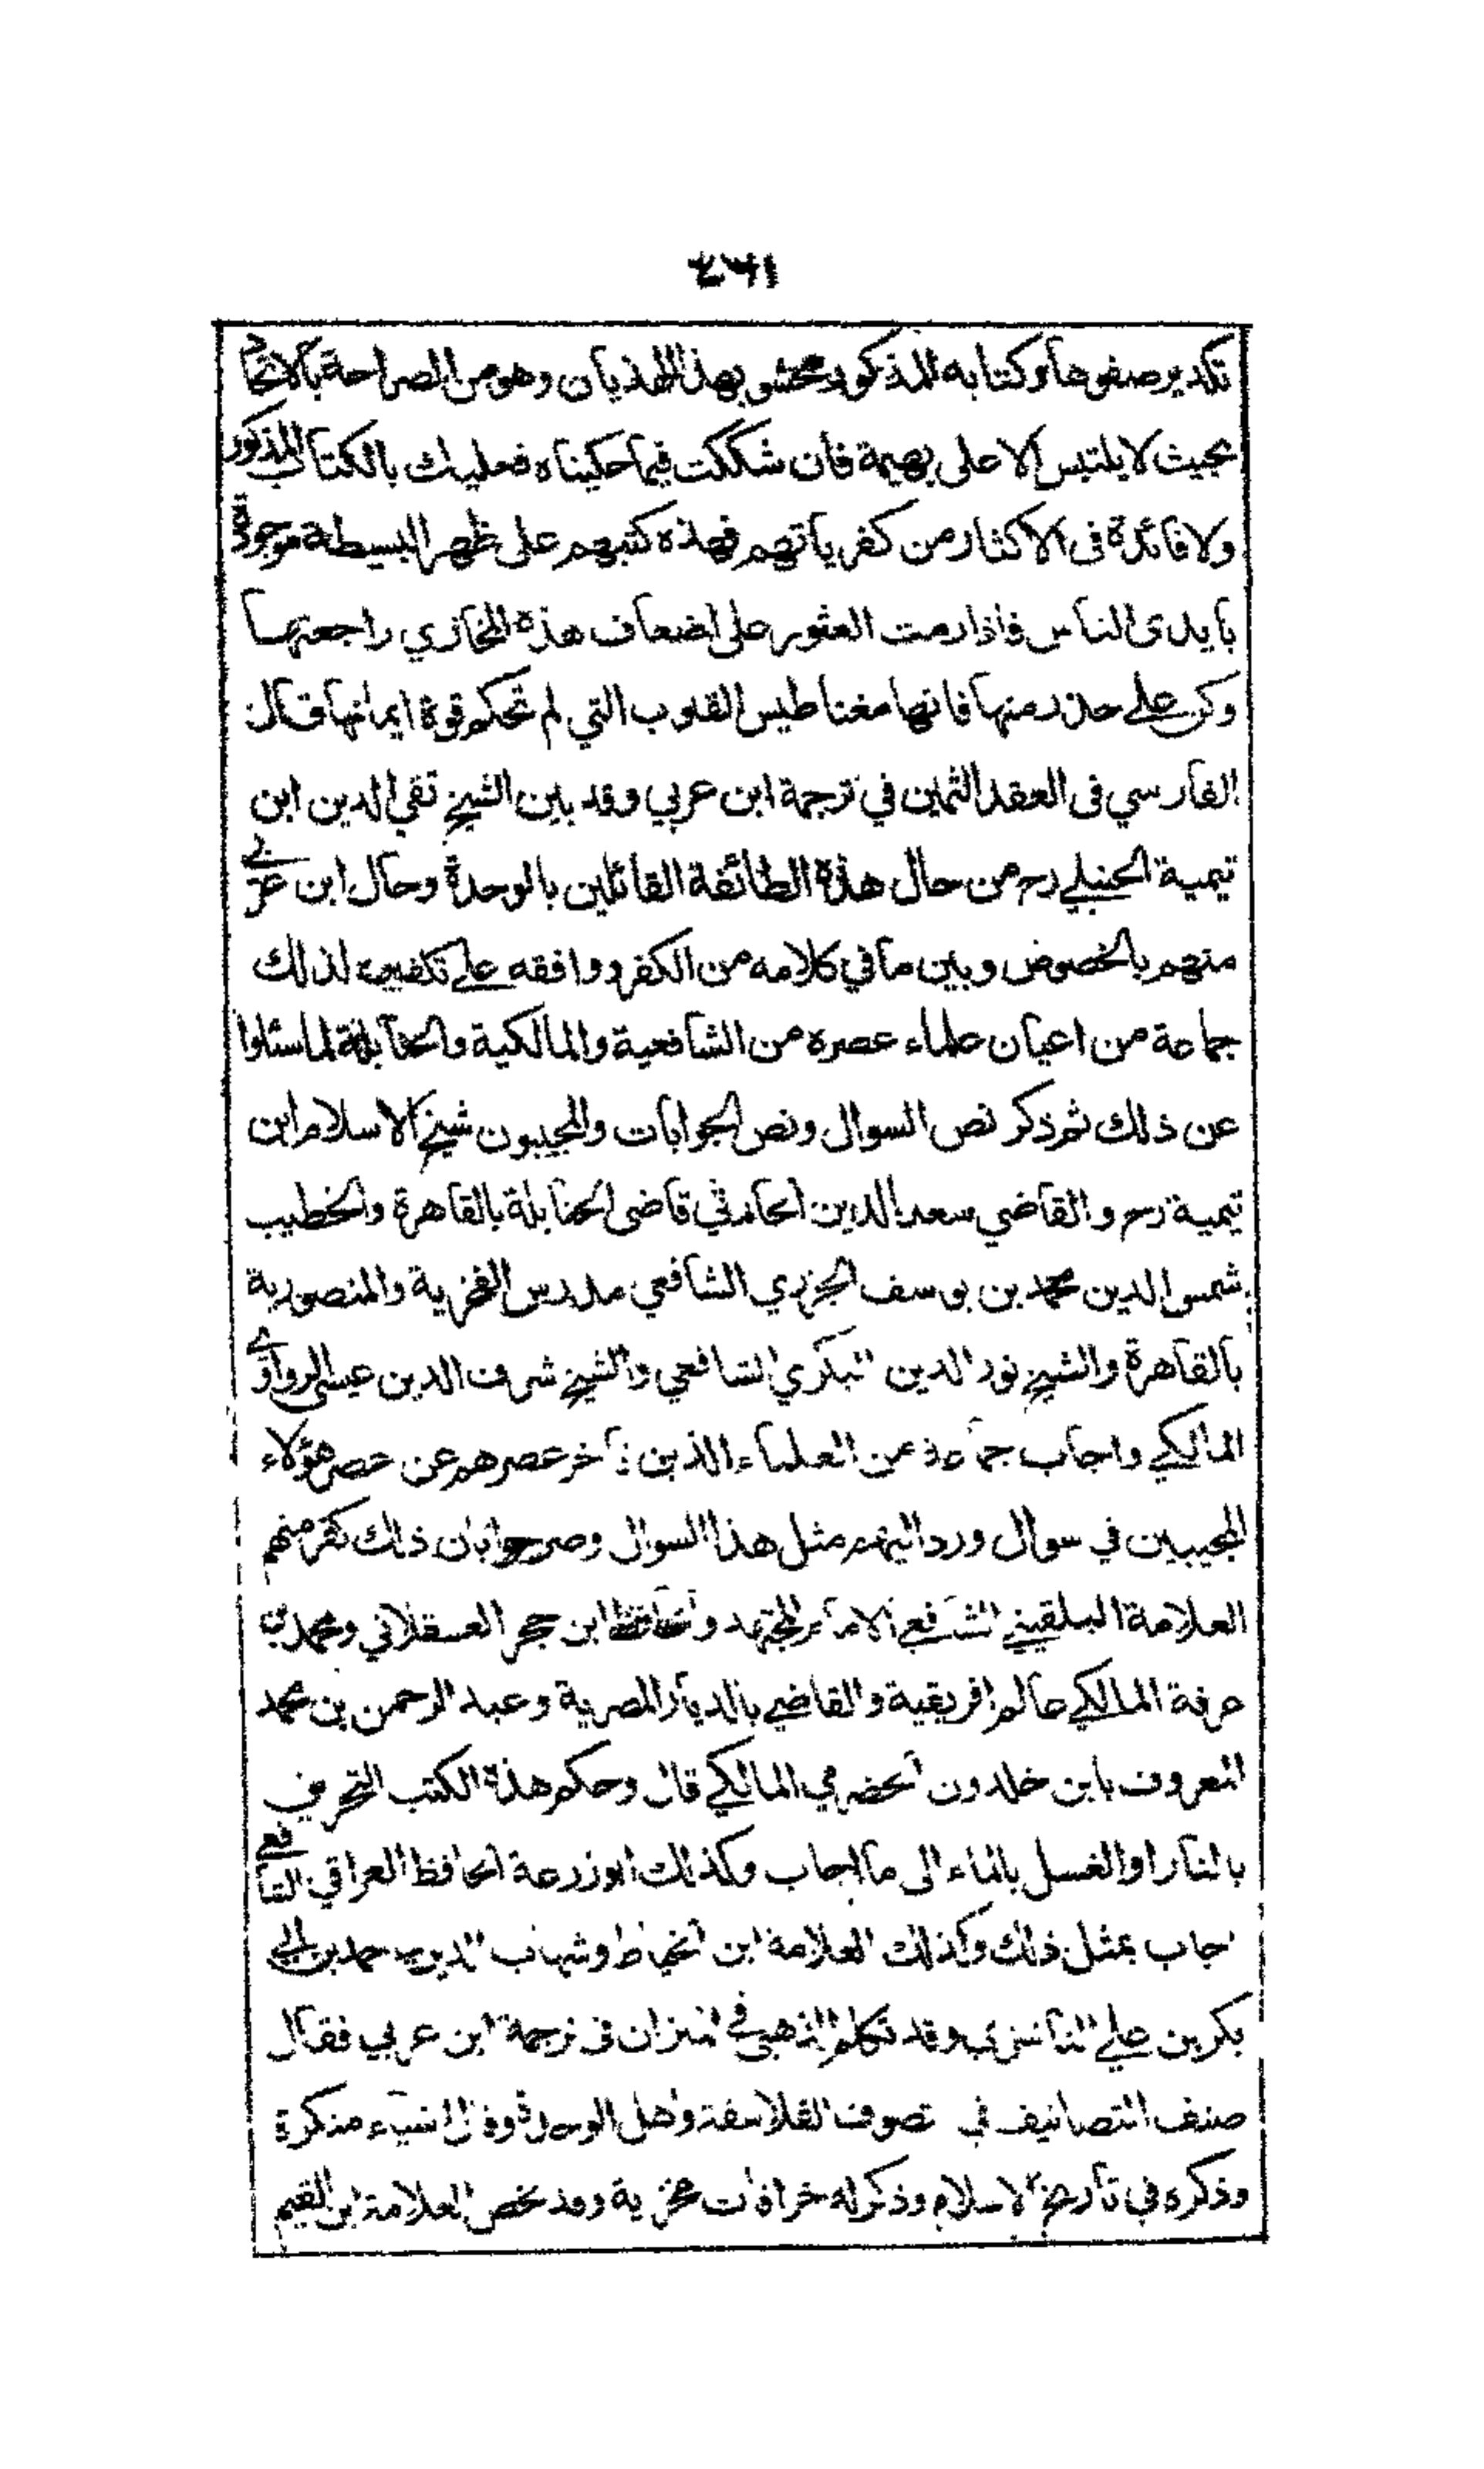 ٤٦١
تكدير صفوها وكتابه المذكور محشو بهذا الهذيان وهو من الصراحة بالاتحاد
بحيث لا يلتبس الا على بهيمة فان شككت فيما حكيناه فعليك بالكتاب المذكور
ولا فائدة فى الاكثار من كفرياتهم فهذه كتبهم على ظهر البسيطة موجودة
بايدى الناس فاذا رمت العثور على اضعاف هذه المخازي راجعتها
وكن على حذر منها فانها مغناطيس القلوب التي لم تحكم قوة ايمانها قال
الفارسي فى العقد الثمين في ترجمة ابن عربي وقد بين الشيخ تقي الدين ابن
تيمية الحنبلي رح من حال هذه الطائفة القائلين بالوحدة وحال ابن عربي
منهم بالخصوص وبين ما في كلامه من الكفر ووافقه على تكفيره لذلك
جماعة من اعيان علماء عصره من الشافعية والمالكية والحنابلة لما سئلوا
عن ذلك ثم ذكر نص السوال ونص الجوابات والمجيبون شيخ الاسلام ابن
تيمية رح والقاضي سعد الدين الحارثي قاضى الحنابلة بالقاهرة والخطيب
شمس الدين محمد بن يوسف الجزري الشافعي مدرس الفخرية والمنصورية
بالقاهرة والشيخ نور الدين البكري الشافعي والشيخ شرف الدين عيسى الزواوي
المالكي واجاب جماعة من العلماء الذين تاخر عصرهم عن عصر هؤلاء
المجيبين في سوال ورد اليهم مثل هذا السوال وصرحوا بان ذلك كفر منهم
العلامة البلقيني الشافعي الامام المجتهد والحافظ ابن حجر العسقلاني ومحمد بن
عرفة المالكي عالم افريقية والقاضي بالديار المصرية وعبد الرحمن بن محمد
المعروف بابن خلدون الحضرمي المالكي قال وحكم هذه الكتب التحريق
بالنار او الغسل بالماء الى ما اجاب وكذلك ابو زرعة الحافظ العراقي الشافعي
اجاب بمثل ذلك وكذلك العلامة ابن الخياط وشهاب الدين احمد بن ابي
بكر بن علي الناشري وقد تكلم الذهبي في الميزان فى ترجمة ابن عربي فقال
صنف التصانيف في تصوف الفلاسفة واهل الوحدة وقال اشياء منكرة
وذكره في تاريخ الاسلام وذكر له خرافات مخزية وقد لخص العلامة ابن القيم